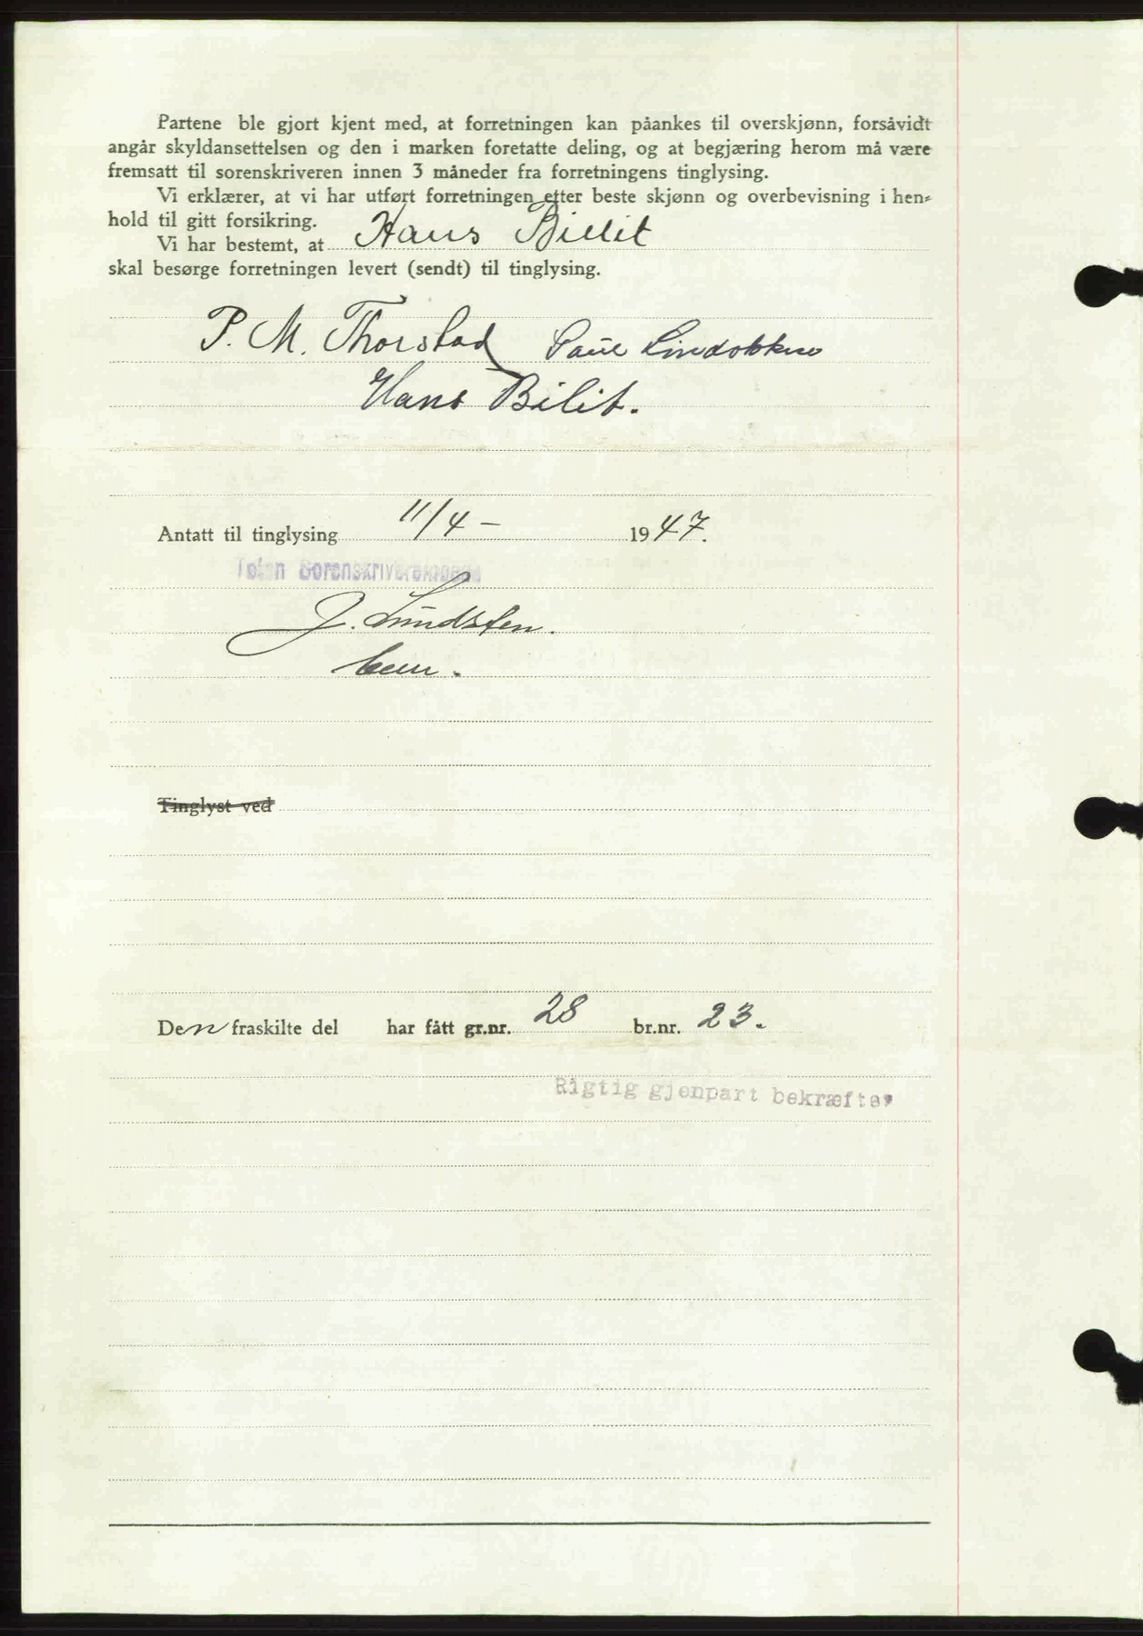 Partene ble gjort kjent med, at forretningen kan påankes til overskjønn, forsåvidt
angår skyldansettelsen og den i marken foretatte deling, og at begjæring herom må være
fremsatt til sorenskriveren innen 3 måneder fra forretningens tinglysing.
Vi erklærer, at vi har utført forretningen etter beste skjønn og overbevisning i hen-
hold til gitt forsikring.
Vi har bestemt, at Hans Billit
skal besørge forretningen levert (sendt) til tinglysing.
P. M. Thorstad Paul Lindokken
Hans Bilit.
Antatt til tinglysing 11/4 - 1947.
Toten Sorenskriverembede
J. Lundsten.
Tinglyst ved
Den fraskilte del har fått gr.nr. 28 br.nr. 23.
Rigtig gjenpart bekræftes